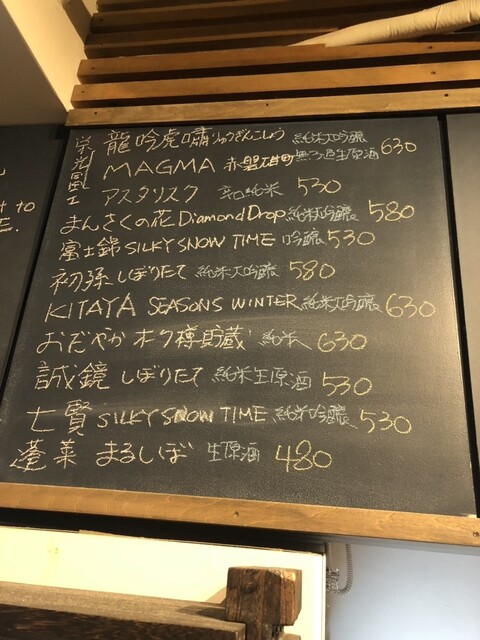 t to
E.
栄光冨士
龍吟虎嘯 りゅうぎんこしょう 純米大吟醸
MAGMA 赤磐雄町 無ろ過生原酒 630
アスタリスク 辛口純米 530
まんさくの花 Diamond Drop 純米吟醸 580
富士錦 SILKY SNOW TIME 吟醸 530
初孫 しぼりたて 純米大吟醸 580
KITAYA SEASONS WINTER 純米大吟醸 630
おだやか 木ク樽貯蔵 純米 630
誠鏡 しぼりたて 純米生原酒 530
七賢 SILKY SNOW TIME 純米吟醸 530
蓬莱 まるしぼ 生原酒 480